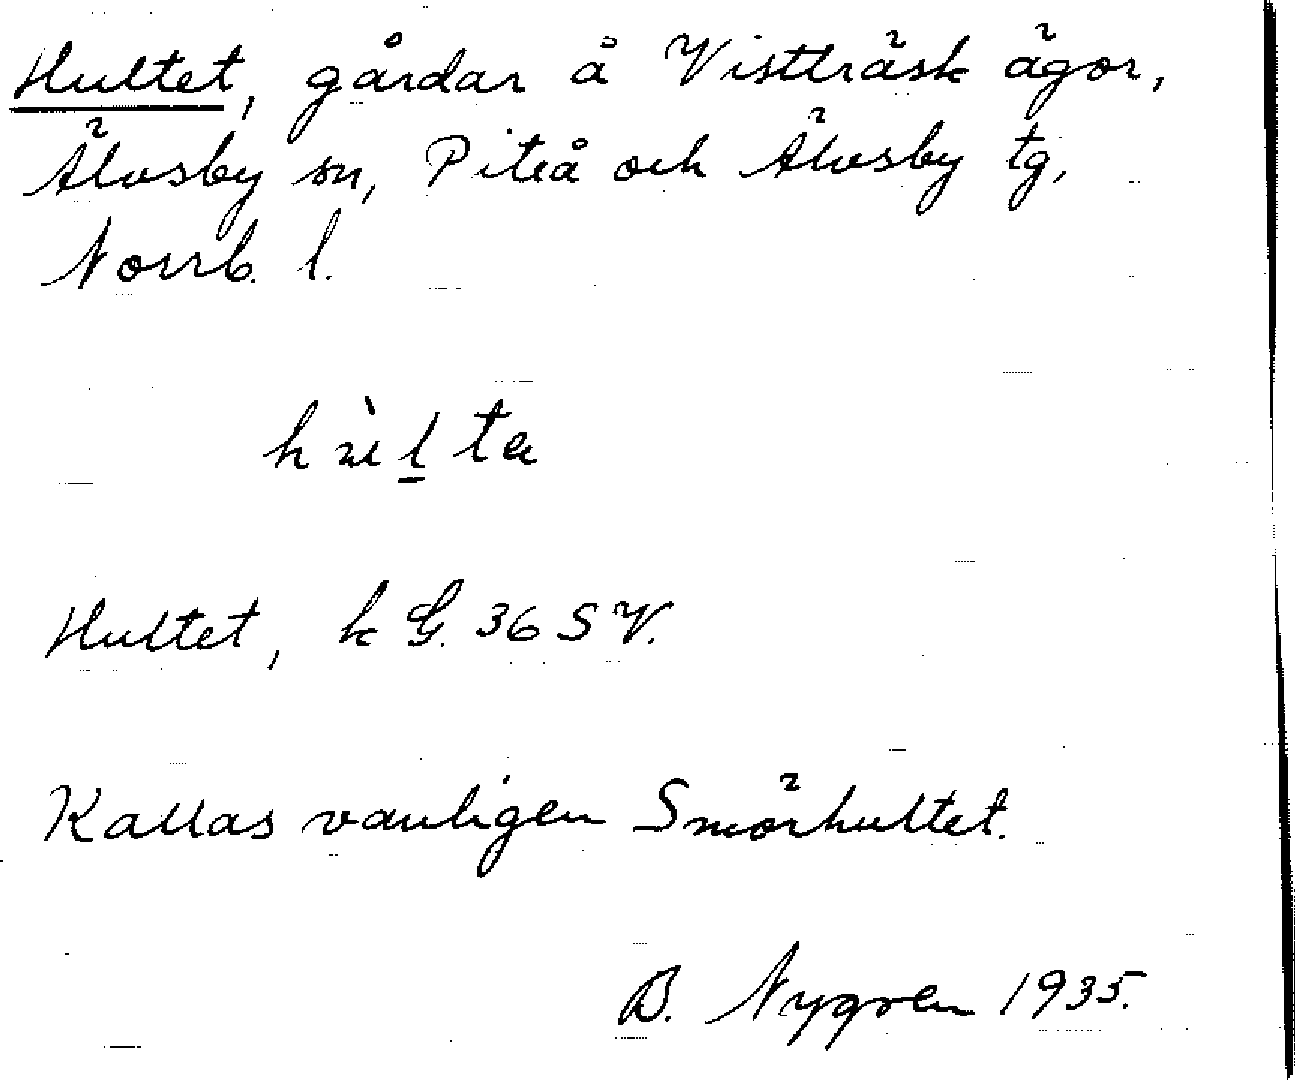 Hultet, gårdar å Vistträsk ägor,
Älvsby sn, Piteå och Älvsby tg,
Norrb. l.
hùl̲ta
Hultet, k G. 36 SV.
Kallas vanligen Smörhultet.
B. Nygren 1935.